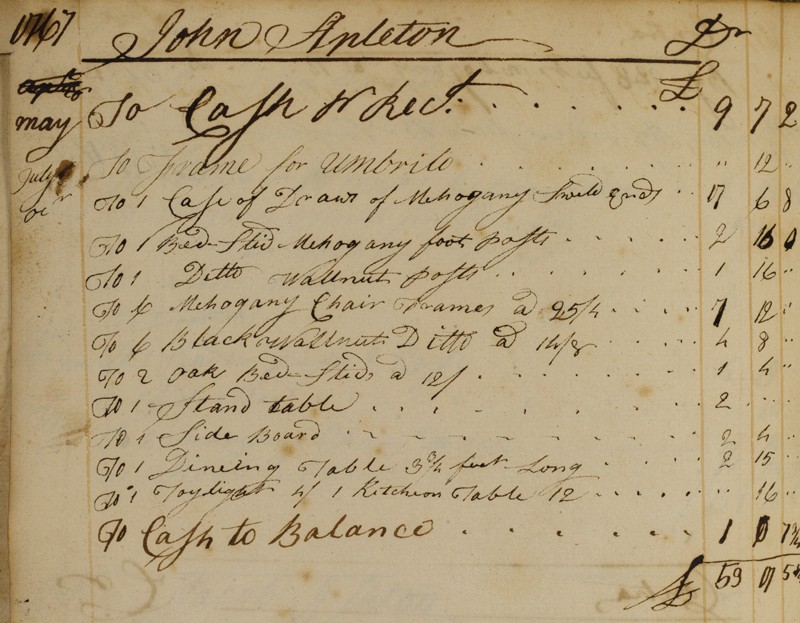 1767 John Apleton Dr
£
may To Cash ⅌ Rect. 9 7 2
July To Frame for Umbrilo " 12 "
Ocr To 1 Case of Draws of Mehogany Sweld Ends 17 6 8
To 1 Bed-Stid Mehogany foot posts 2 16 0
To 1 Ditto Wallnut posts 1 16 "
To 6 Mehogany Chair Frames a 25/4 7 12 "
To 6 Black Wallnut Ditto a 14/8 4 8 "
To 2 Oak Bed-Stids a 12/ 1 4 "
To 1 Stand table 2
To 1 Side Board 2 4 "
To 1 Dineing Table 3¾ feet Long 2 15
To 1 Toylight 4/ 1 Kitcheon Table 12 " 16 "
To Cash to Balance 1 7¾
£ 59